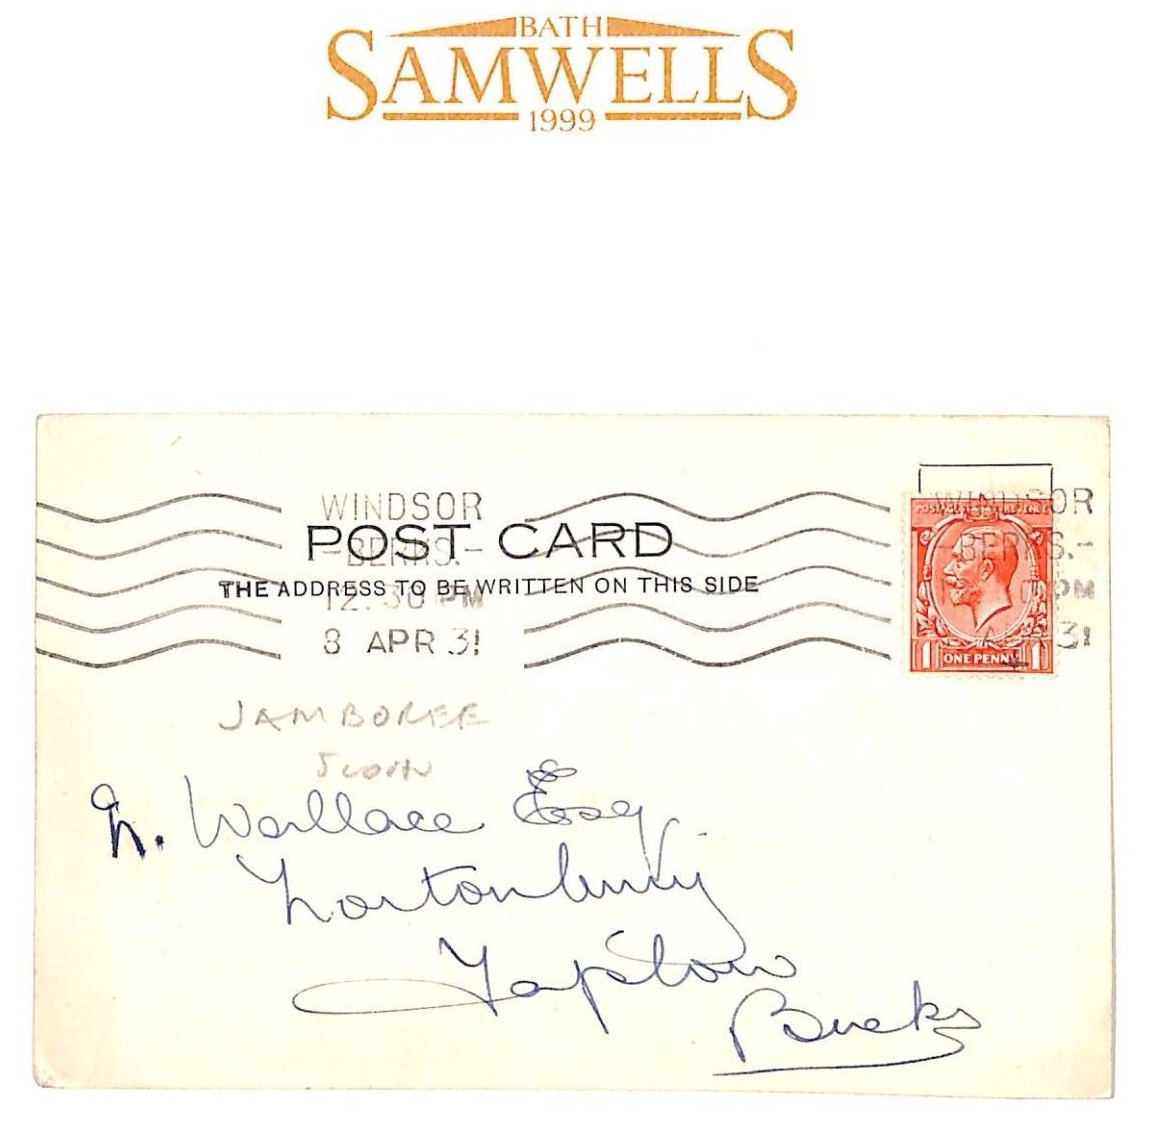 BATH
SAMWELLS
1999
WINDSOR
-BERKS.-
12.30 PM
8 APR 31
WINDSOR
-BERKS.-
PM
APR 31
POST CARD
THE ADDRESS TO BE WRITTEN ON THIS SIDE
POSTAGE REVENUE
1 ONE PENNY 1
JAMBOREE
N. Wallace Esq
Taplow
Bucks